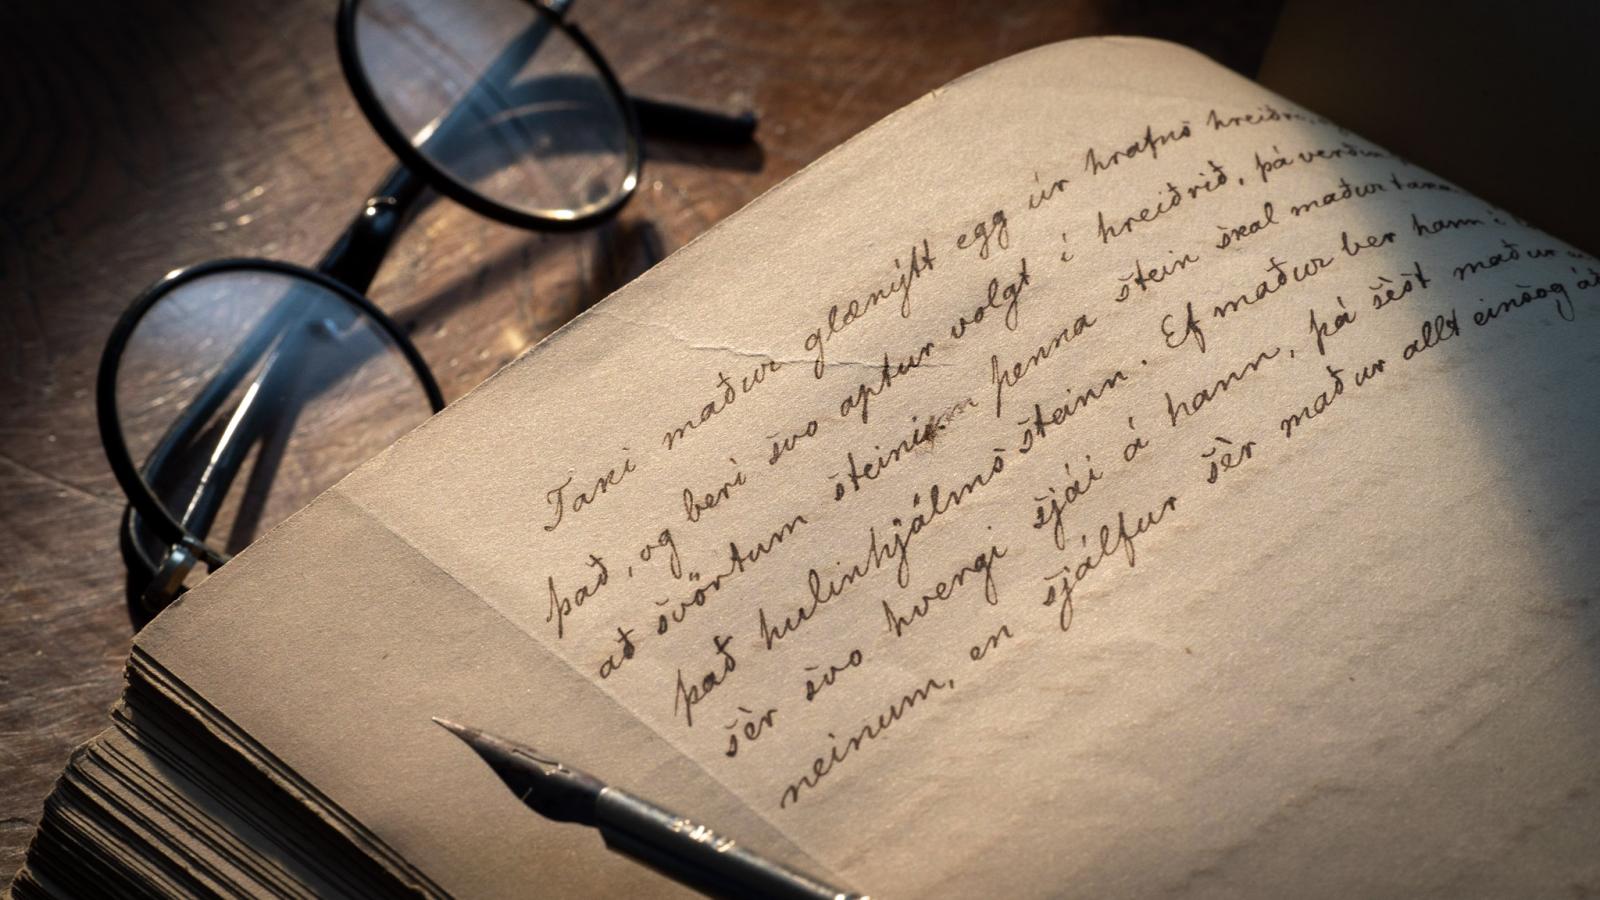 Taki maður glænýtt egg úr hrafns
það, og beri svo aptur volgt í hreiðrið, þá
að svörtum steini þenna stein skal maður
það hulinhjálmssteinn. Ef maður ber hann í
sèr svo hvergi sjái á hann, þá sèst maður
neinum, en sjálfur sèr maður allt einsog